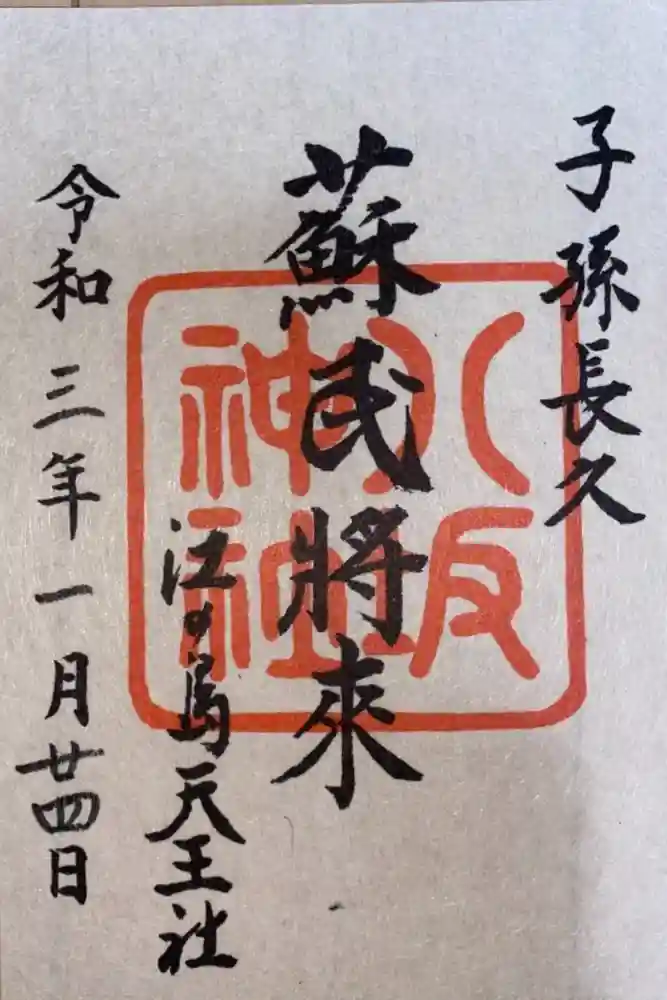 子孫長久
蘇民將來
江ノ島天王社
令和三年一月廿四日
八坂神社